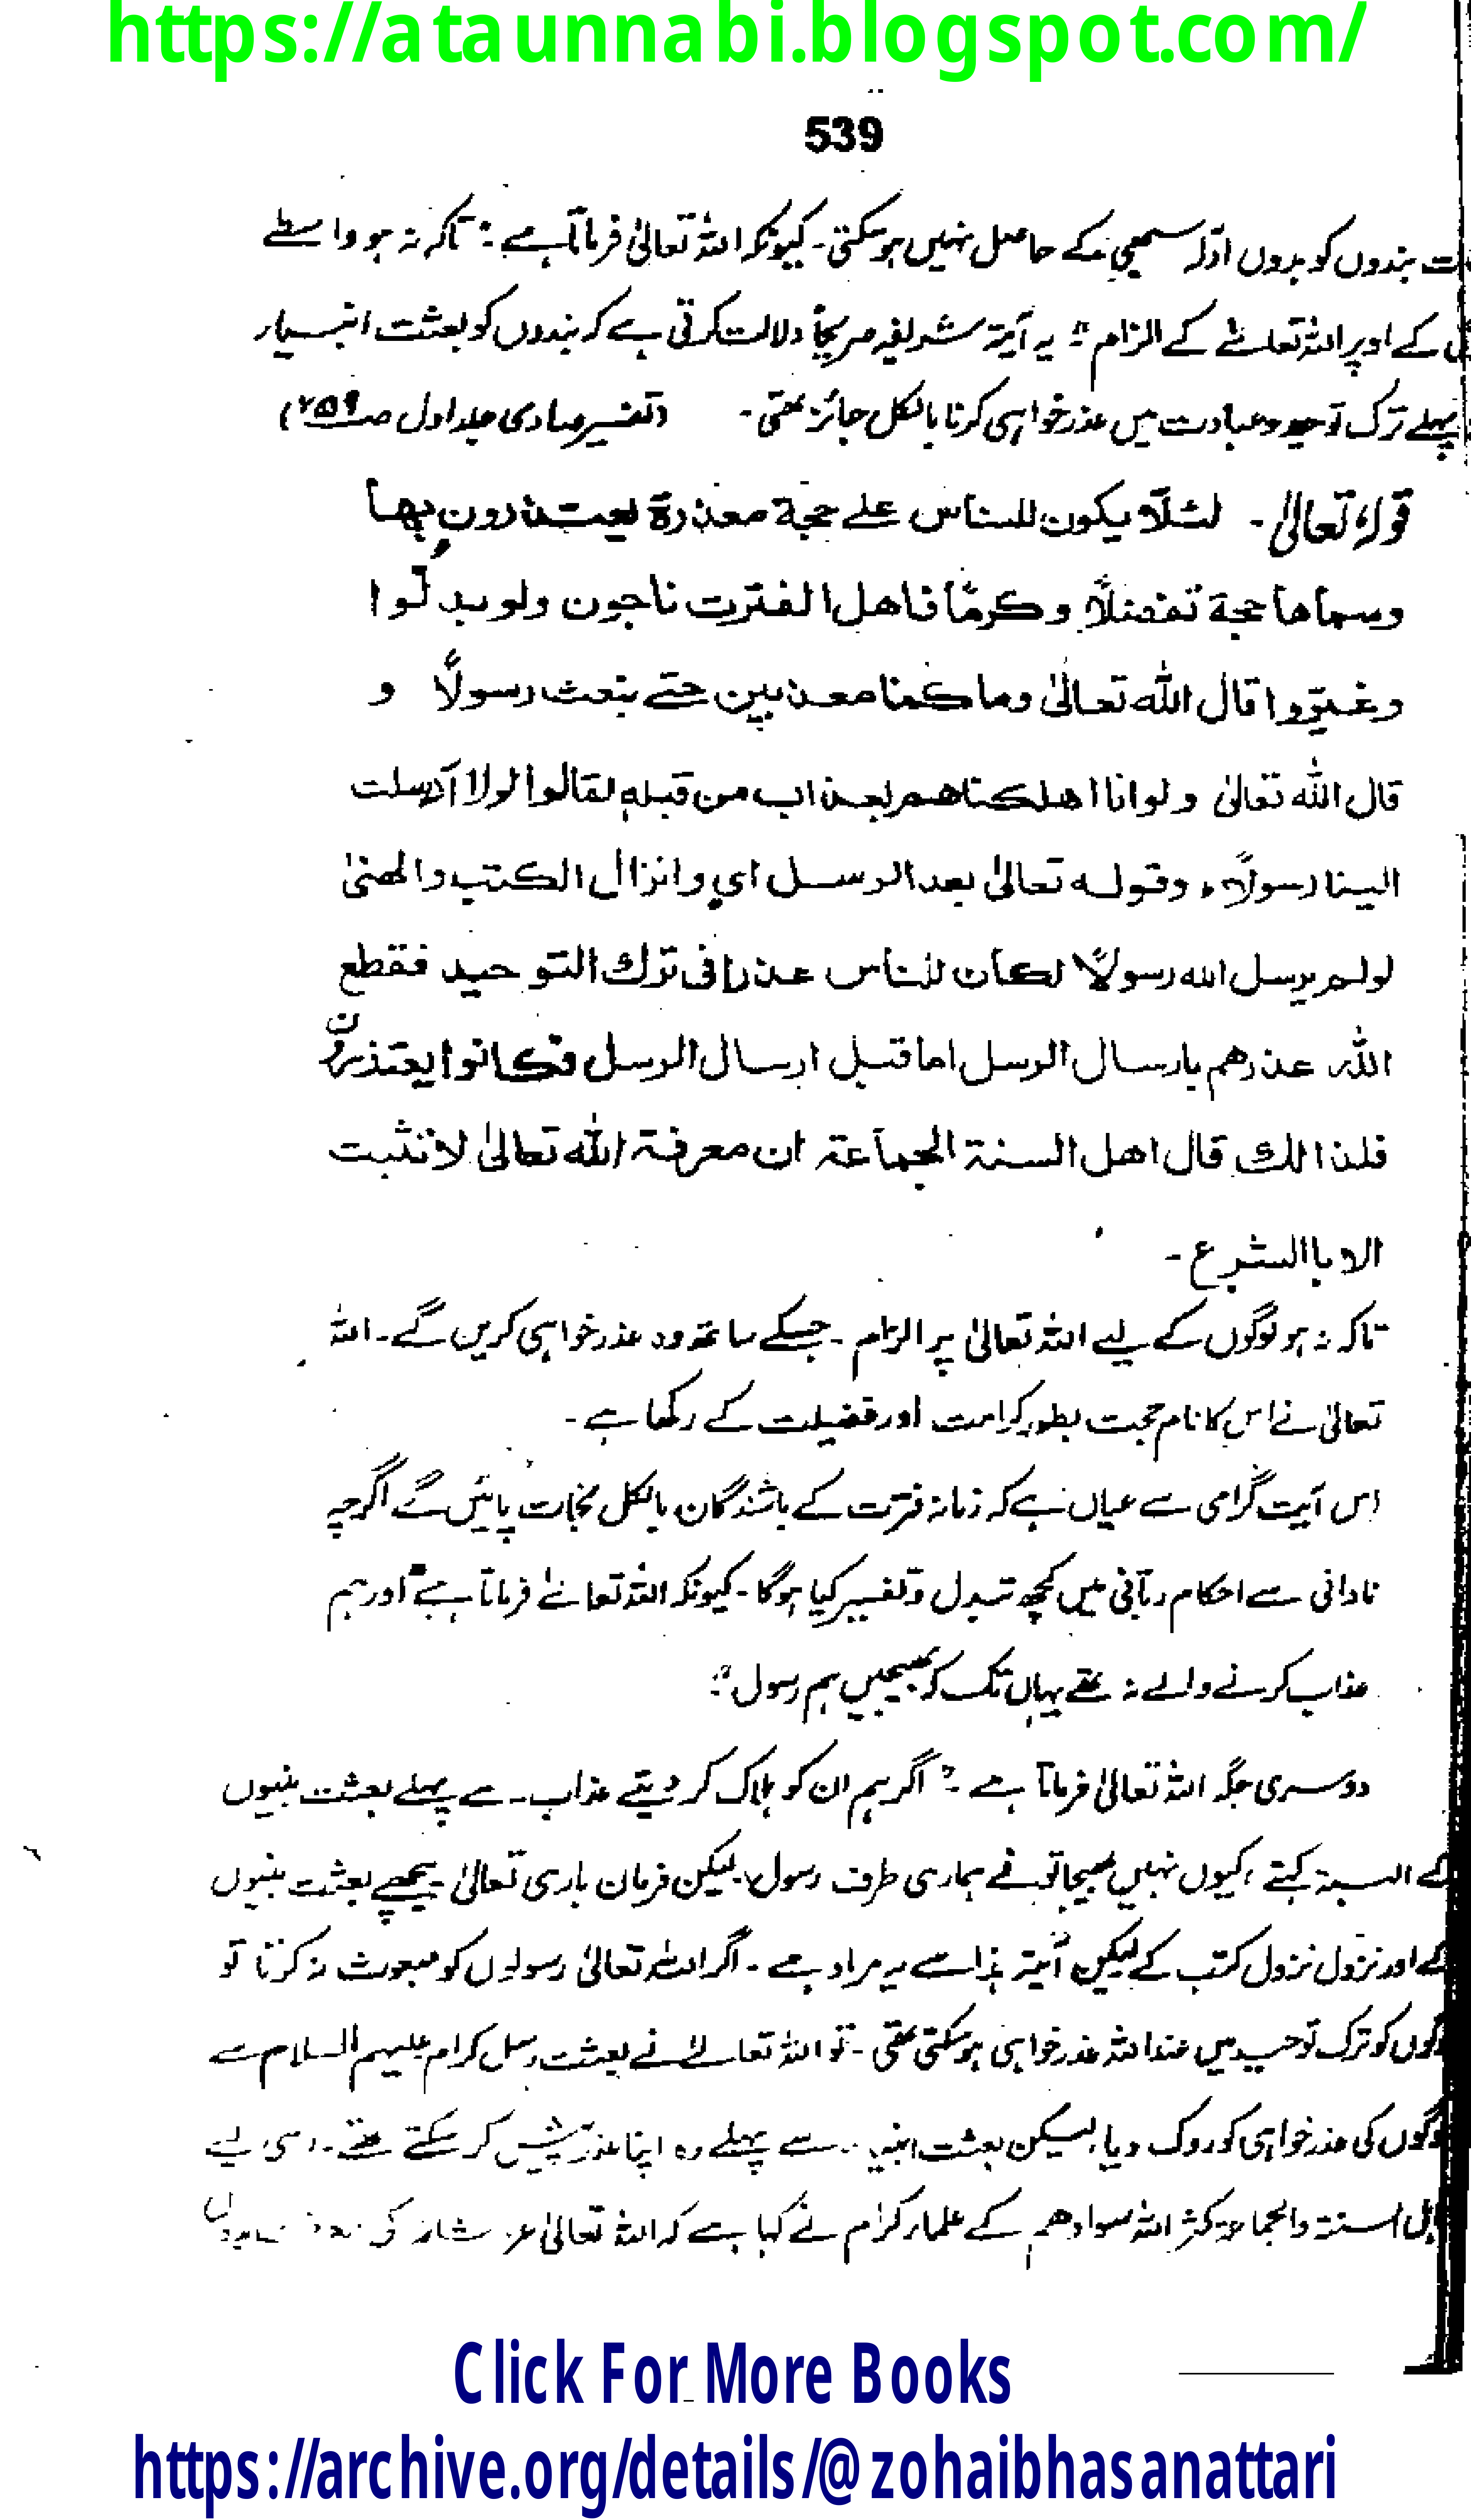 https://ataunnabi.blogspot.com/
539
بندوں کو بدوں ادلہ سمعیہ کے حاصل نہیں ہوسکتی۔ کیونکہ اللہ تعالیٰ فرماتا ہے :" تاکہ نہ ہو واسطے
کے اوپر اللہ تعالےٰ کے الزام" یہ آیۃ شریفہ صریحاً دلالت کرتی ہے کہ بندوں کو بعثت انبیاء
پہلے ترک توحید وعبادت میں عذرخواہی کرنا بالکل جائز تھی۔ (تفسیر صاوی جلد اول صـ۲۵۹)
قولہ تعالیٰ۔ لئلّا یکون للناس علے حجة معذرة یعتذرون بہا
وسماھا حجة تفضلًا وکرمًا فاھل الفترت ناجون ولو بدلُوا
وغیّروا قال اللّٰه تعالیٰ وما کنا معذبین حتے نبعث رسولًا و
قال اللّٰه تعالیٰ ولو انا اھلکناھم بعذاب من قبلهٖ لقالوا لولا ارسلت
الینا رسولًا، وقوله تعالیٰ بعد الرسل ای وانزال الکتب والمعنیٰ
لو لم یرسل الله رسولًا لکان للناس عذرا فی ترك التوحید فقطع
اللّٰه عذرھم بارسال الرسل اما قبل ارسال الرسل فکانوا یعتذرون
فلذالك قال اھل السنة الجماعة ان معرفة اللّٰه تعالیٰ لا تثبت
الا باالشرع۔
تاکہ نہ ہو لوگوں کے لیے اللہ تعالیٰ پر الزام۔ جسکے ساتھ وہ عذرخواہی کریں گے۔ اللہ
تعالیٰ نے اس کا نام حجت بطور کرامت اور فضیلت کے رکھا ہے۔
اس آیت گرامی سے عیاں ہے کہ زمانہ فترت کے باشندگان بالکل نجات پائیں گے اگرچہ
نادانی سے احکام ربّانی میں کچھ تبدل وتغییر کیا ہوگا۔ کیونکہ اللہ تعالےٰ فرماتا ہے" اور ہم
عذاب کرنے والے نہ تھے یہاں تک کہ بھیجیں ہم رسول"۔
دوسری جگہ اللہ تعالیٰ فرماتا ہے :" اگر ہم ان کو ہلاک کر دیتے عذاب سے پہلے بعثت نبیوں
کے البتہ کہتے، کیوں نہیں بھیجا تو نے ہماری طرف رسول، لیکن فرمان باری تعالیٰ پیچھے بعثت نبیوں
کے اور نزول نزول کتب کے لیکن آیۃ ہذا سے یہ مراد ہے۔ اگر اللہ تعالیٰ رسولوں کو مبعوث نہ کرتا تو
لوگوں کو ترک توحید میں عنداللہ عذرخواہی ہوسکتی تھی۔ تو اللہ تعالےٰ نے بعثت رسل کرام علیہم السلام سے
لوگوں کی عذرخواہی کو روک دیا، لیکن بعثت انبیاء سے پہلے وہ اپنا عذر پیش کر سکتے تھے۔ اسی لیے
اہل السنۃ والجماعۃ کثر اللہ سوادھم کے علماء کرام نے کہا ہے کہ اللہ تعالیٰ عز شانہ کی
Click For More Books
https://archive.org/details/@zohaibhasanattari